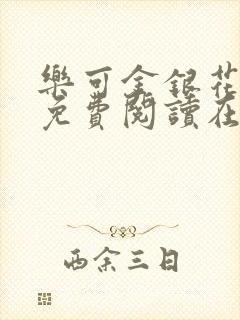 樂可金銀花
免費閱讀在
西余三日